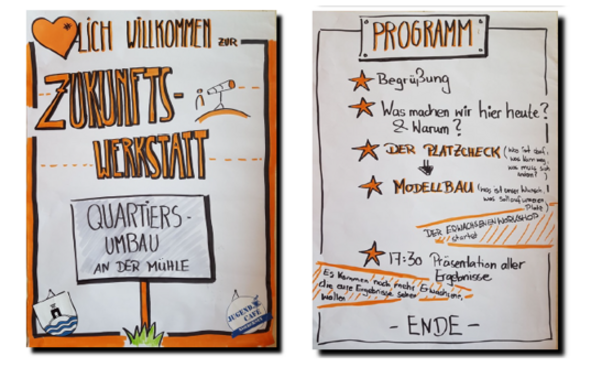 LICH WILLKOMMEN ZUR
ZUKUNFTS-
WERKSTATT
QUARTIERS-
UMBAU
AN DER MÜHLE
JUGEND
CAFE
PROGRAMM
Begrüßung
Was machen wir hier heute?
& Warum?
DER PLATZCHECK (Was ist doof,
was kann weg,
was muss sich
ändern?)
MODELLBAU (Was ist unser Wunsch,
was soll auf unserem
Platz?)
DER ERWACHSENENWORKSHOP
startet
17:30 Präsentation aller
Ergebnisse
Es kommen noch mehr Erwachsene,
die eure Ergebnisse sehen
wollen
- ENDE -